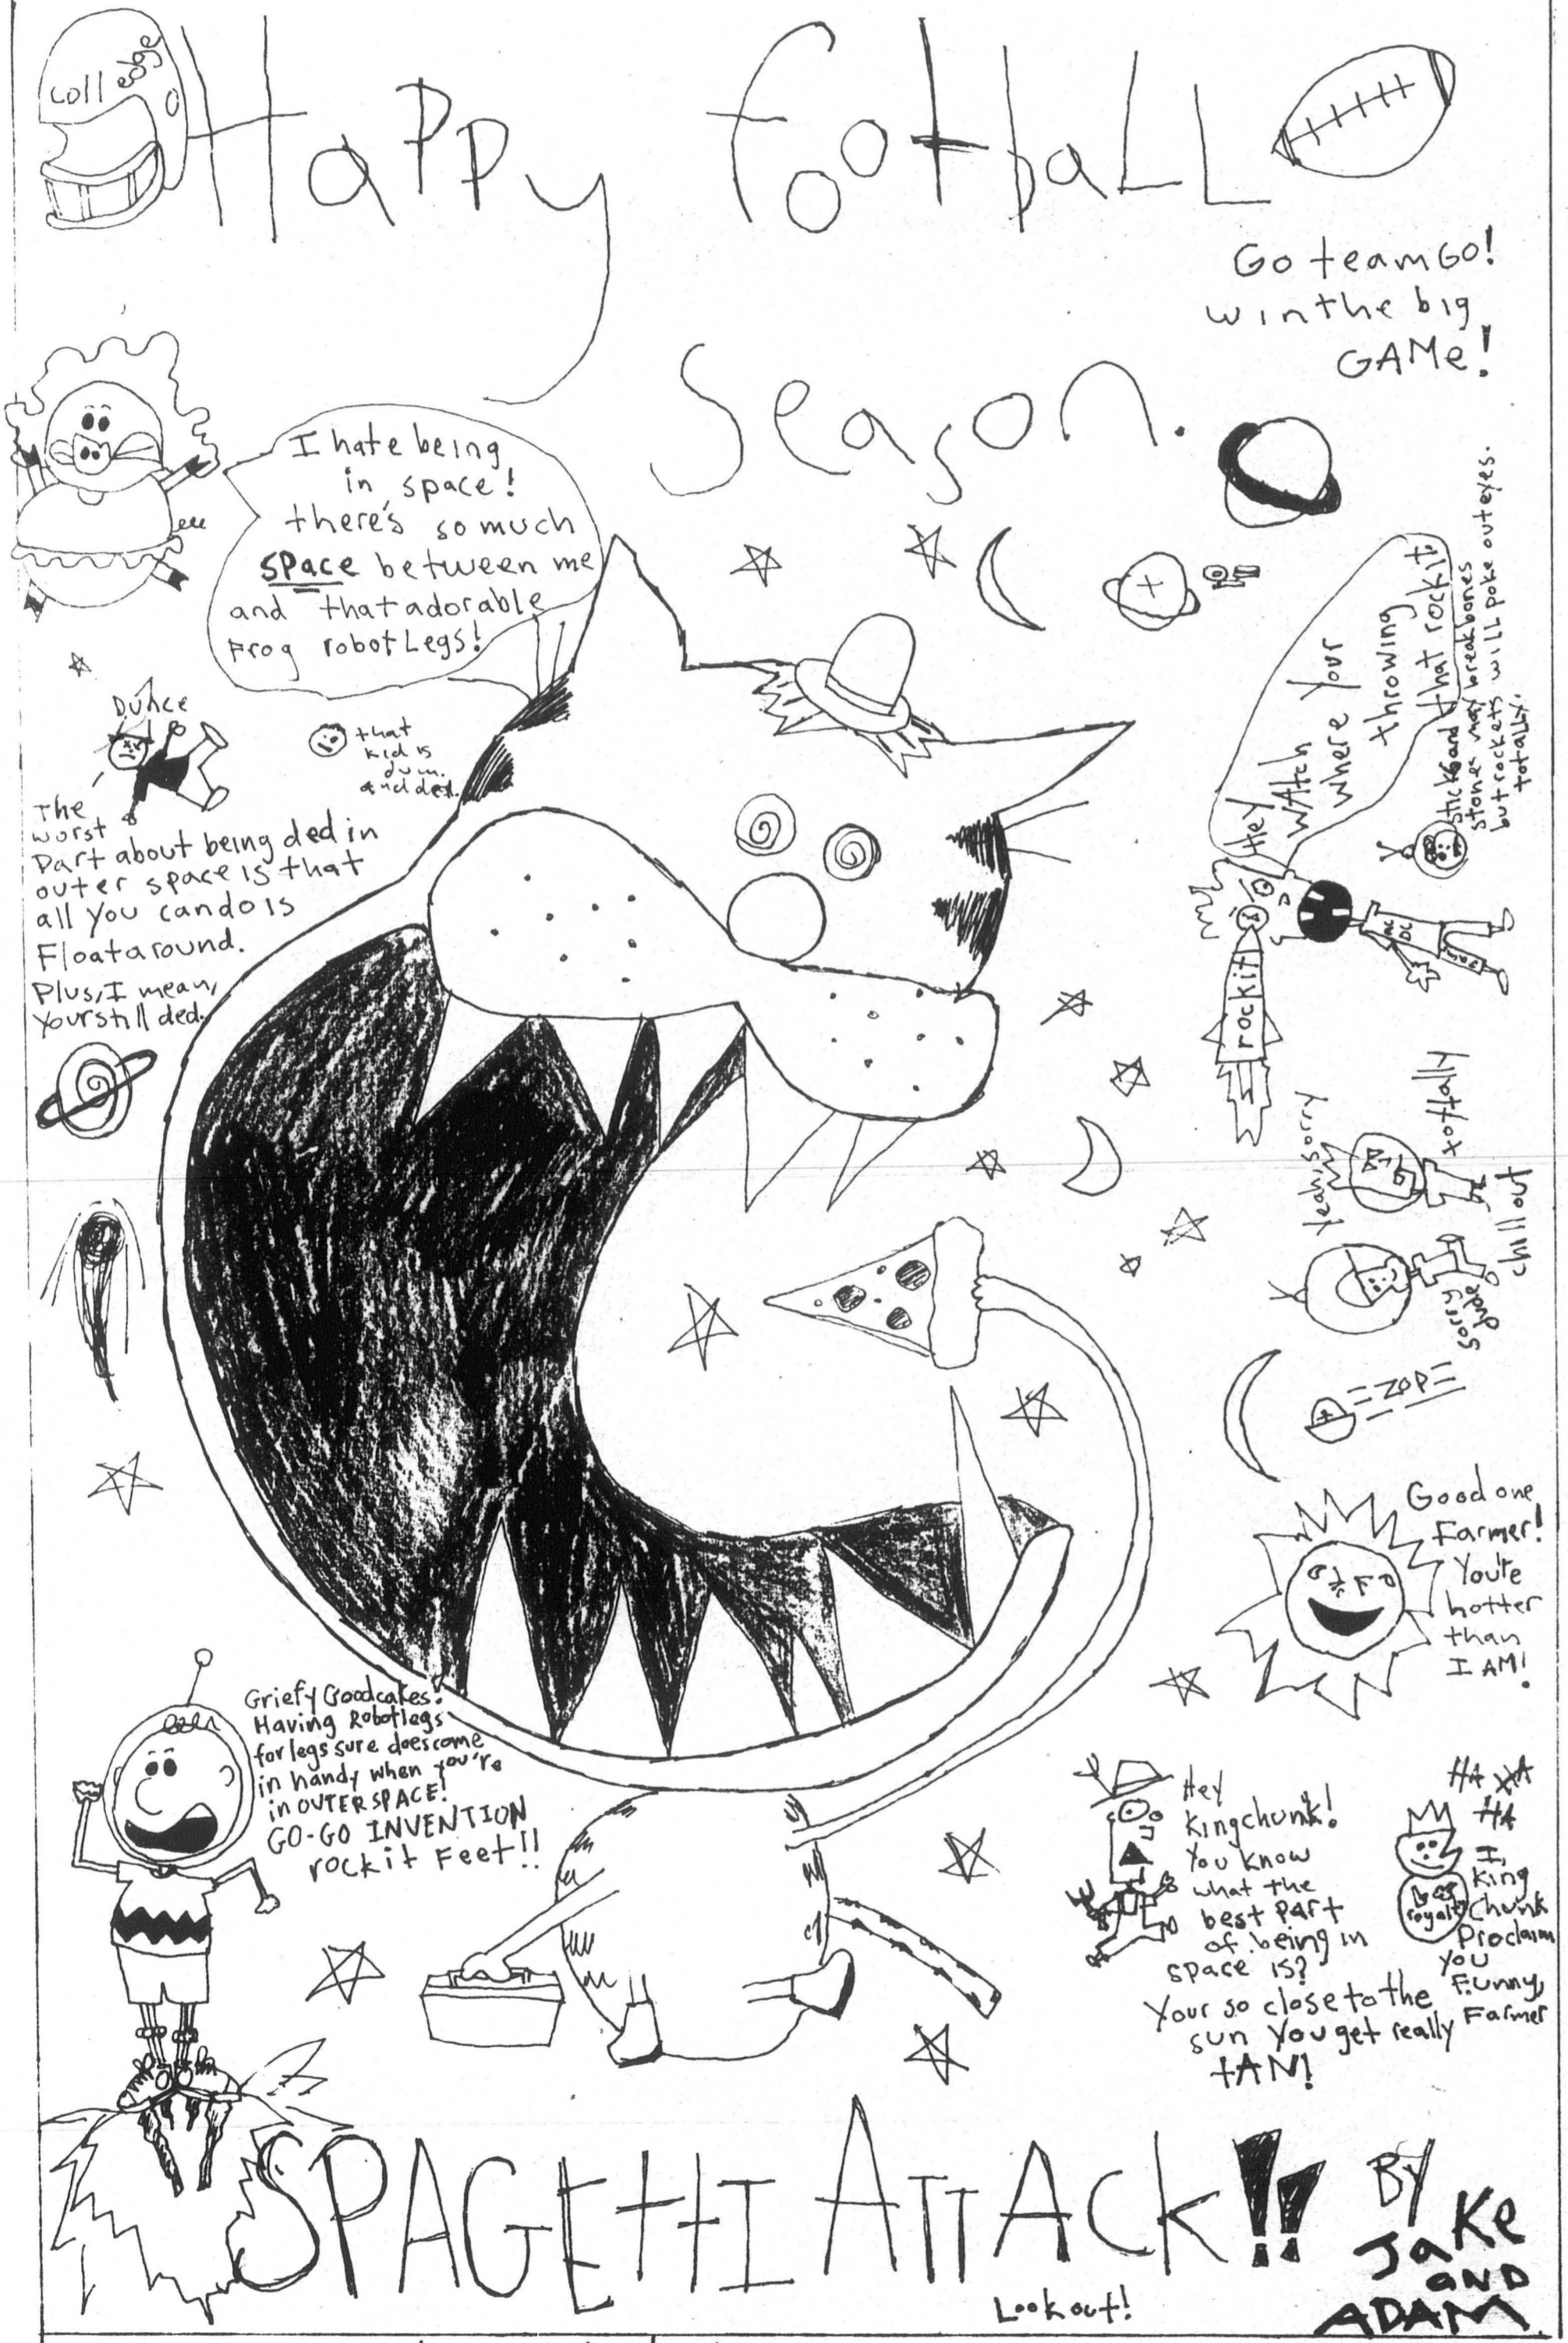 coll edge
Happy football
Season.
Go team GO!
win the big
GAMe!
I hate being
in space!
there's so much
space between me
and that adorable
Frog robot Legs!
DUNCE
that
kid is
dum.
and ded.
The
worst
part about being ded in
outer space is that
all you can do is
Float around.
Plus, I mean,
your still ded.
Hey
WAtch
where your
throwing
that rockit
sticks and
stones may break bones
but rockets will poke out eyes.
totally!
AC
DC
rockit
yeah, sorry
totally
sorry
dude
chill out
ZOP
Good one
Farmer!
You're
hotter
than
I AM!
Griefy Goodcakes!
Having Robotlegs
for legs sure does come
in handy when you're
in OUTERSPACE!
GO-GO INVENTION
rockit Feet!!
Hey
Kingchunk!
You know
what the
best part
of being in
space is?
Your so close to the
sun you get really
tAN!
HA HA
HA
I,
King
Chunk
Proclaim
you
Funny,
Farmer
royalty
SPAGEttI ATTACk!!
Lookout!
BY
JaKe
aND
ADAM